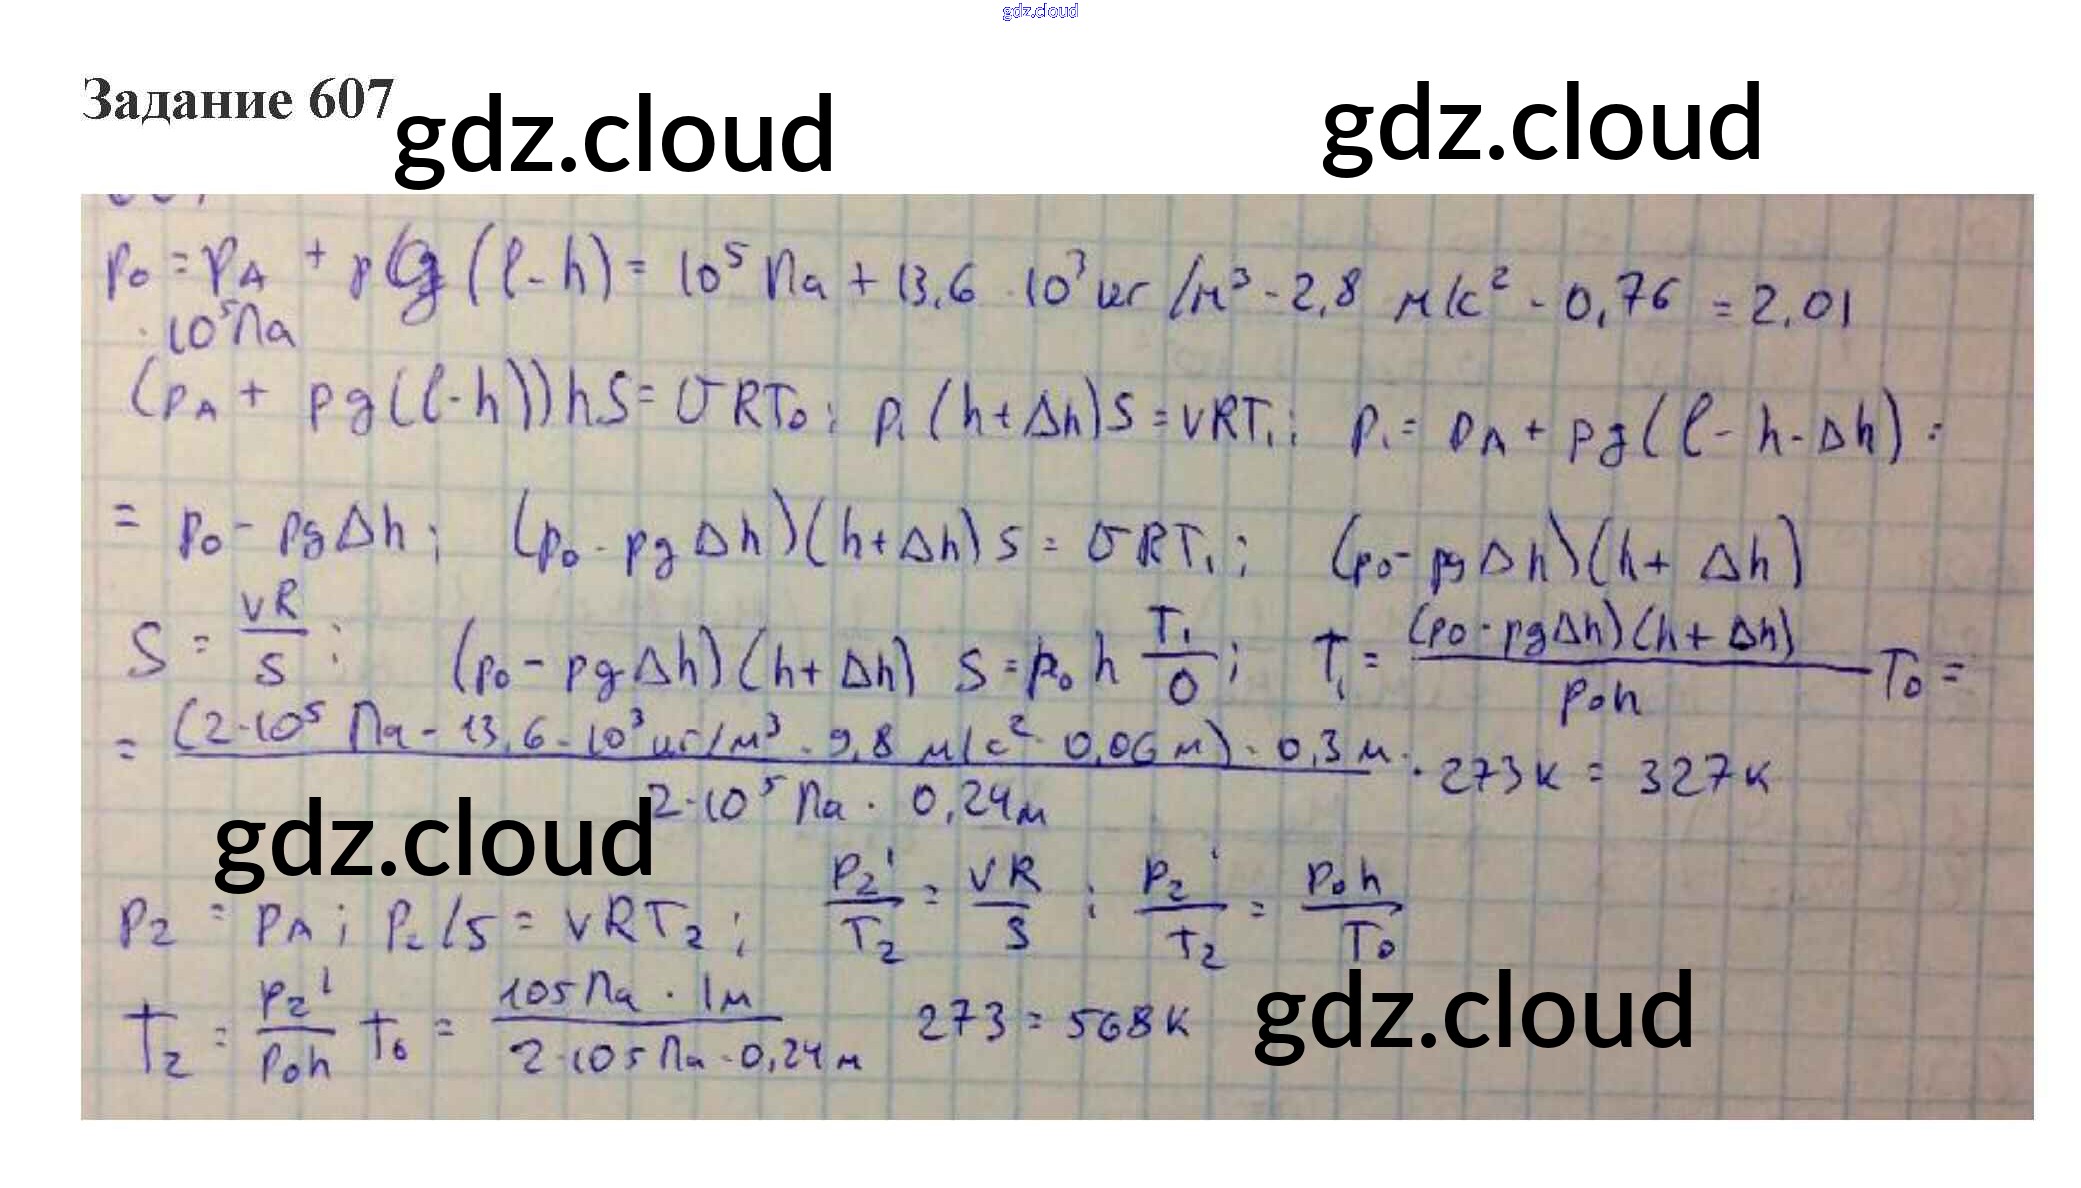 gdz.cloud
Задание 607
gdz.cloud gdz.cloud
p₀ = p_A + ρg(l-h) = 10⁵ Па + 13,6 · 10³ кг/м³ - 2,8 м/с² - 0,76 = 2,01
· 10⁵ Па
(p_A + ρg(l-h))hS = υRT₀; p₁(h+Δh)S = νRT₁; p₁ = p_A + ρg(l-h-Δh) =
= p₀ - ρgΔh; (p₀ - ρgΔh)(h+Δh)S = υRT₁; (p₀ - ρgΔh)(h+Δh)
S = νR/S; (p₀ - ρgΔh)(h+Δh) S = p₀h T₁/0; T₁ = (p₀ - ρgΔh)(h+Δh)/p₀h T₀ =
= (2·10⁵ Па - 13,6 - 10³ кг/м³ · 9,8 м/с² · 0,06 м) · 0,3 м / 2·10⁵ Па · 0,24 м · 273 К = 327 К
gdz.cloud
p₂ = p_A; p₂lS = νRT₂; p₂l/T₂ = νR/S; p₂l/T₂ = p₀h/T₀
T₂ = p₂l/p₀h T₀ = 105 Па · 1 м / 2·105 Па · 0,24 м 273 = 568 К
gdz.cloud